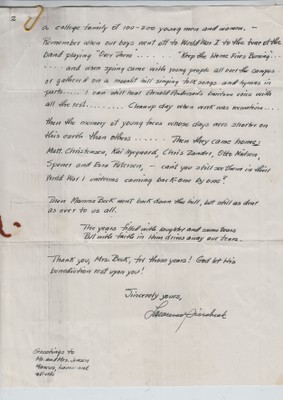 2
a college family of 100-200 young men and women. -
Remember when our boys went off to World War I to the tune of the
band playing "Over There ........ "Keep the Home Fires Burning"
..... and when spring came with young people all over the campus
or gathered on a moonlit hill singing folk songs and hymns in
parts..... I can still hear Arnold Andersen's baritone voice with
all the rest........... Cleanup day when work was mountain....
Then the memory of young faces whose days were shorter on
this earth than others ........... Then they came home
Matt. Christensen, Kai Nygaard, Chris Zander, Otto Nielsen,
Spener and Esra Petersen, - can't you still see them in their
World War I uniforms coming back-one by one?
Then Mamma Beck went back down the hill, but still as dear
as ever to us all.
The years filled with laughter and some tears
But with faith in Him drives away our fears.
Thank you, Mrs. Beck, for those years! God let His
benediction rest upon you!
Sincerely yours,
Greetings to
Mr. and Mrs. Jensen
Marcus, Laura and
all etc